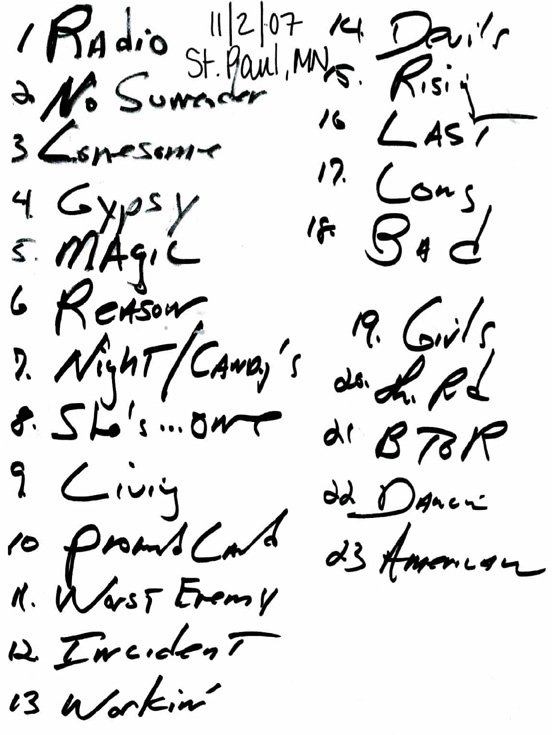 11/2/07
St. Paul, MN
1 Radio
2. No Surrender
3 Lonesome
4. Gypsy
5. MAgic
6 Reason
7. Night/Candy's
8. She's...one
9 Living
10 Promised Land
11. Worst Enemy
12. Incident
13 Workin'
14. Devil's
15. Rising
16 LAST
17. Long
18. Bad
19. Girls
20. Th. Rd
21 BToR
22 Dancin
23 American